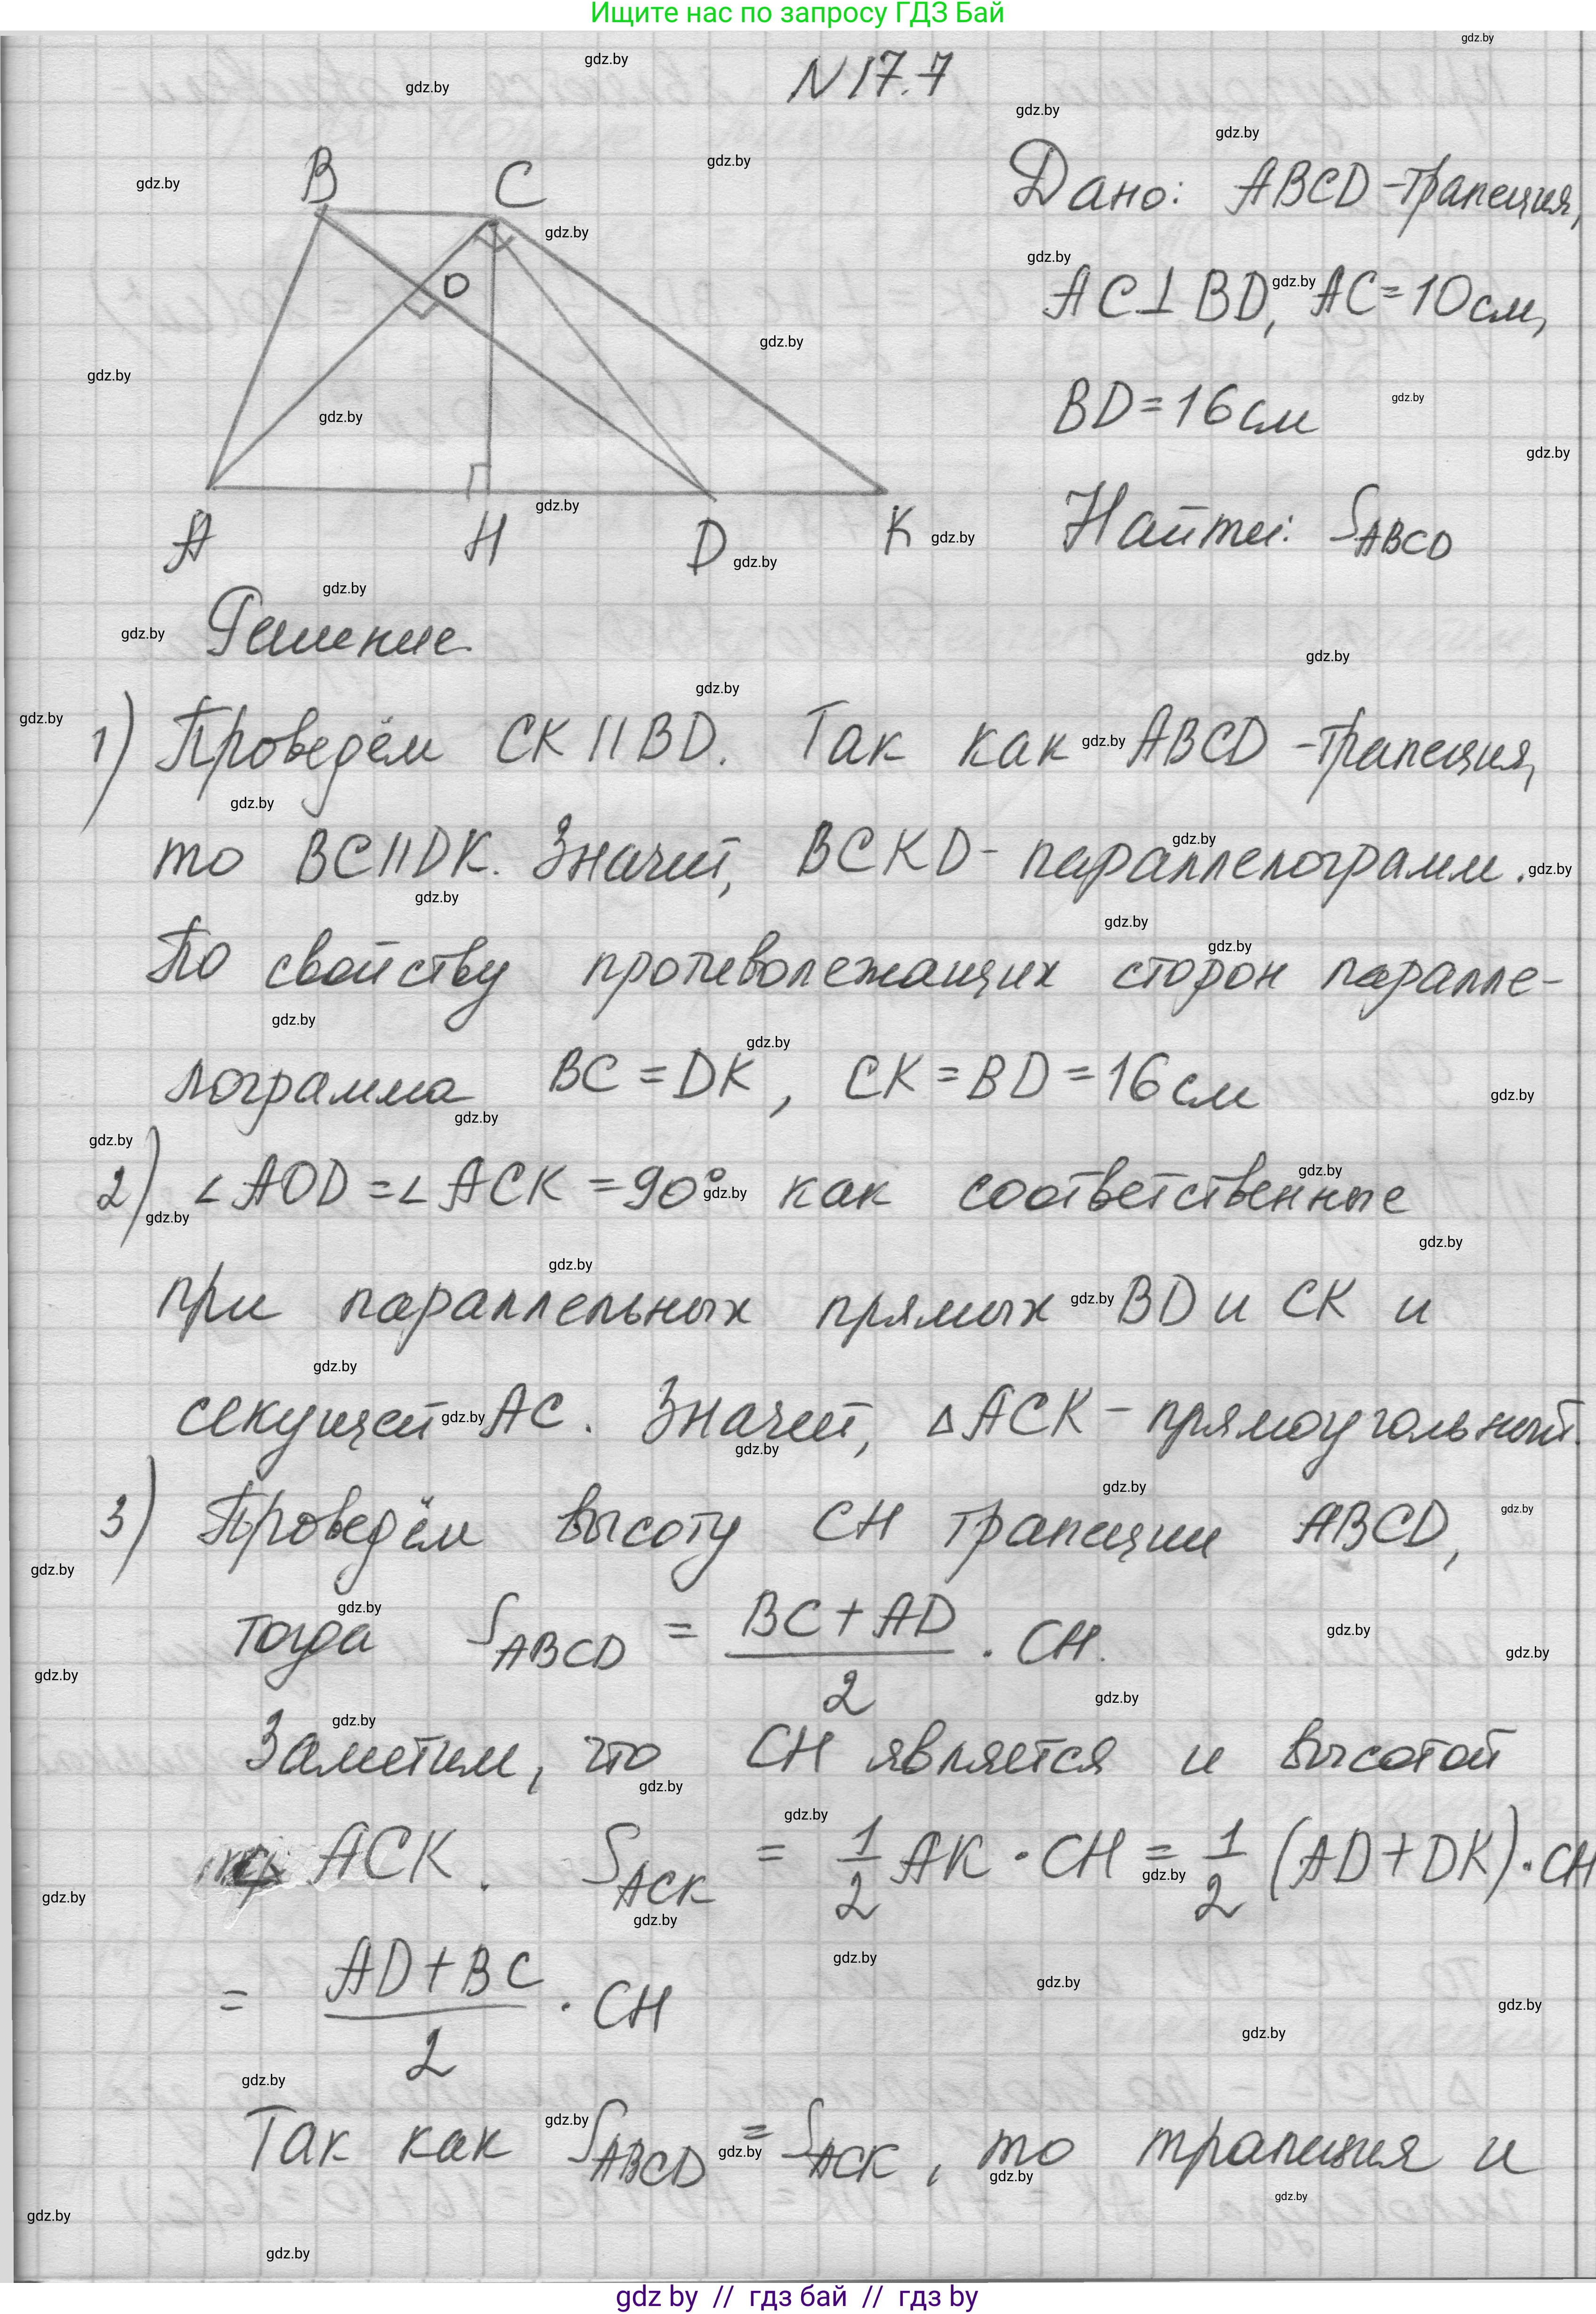 Ищите нас по запросу ГДЗ Бай
N 17.7
B C
O
A H D K
Дано: ABCD - трапеция,
AC ⊥ BD, AC = 10 см,
BD = 16 см
Найти: S_ABCD
Решение.
1) Проведём CK || BD. Так как ABCD - трапеция,
то BC || DK. Значит, BCKD - параллелограмм.
По свойству противолежащих сторон паралле-
лограмма BC = DK, CK = BD = 16 см
2) ∠AOD = ∠ACK = 90° как соответственные
при параллельных прямых BD и CK и
секущей AC. Значит, △ACK - прямоугольный.
3) Проведём высоту CH трапеции ABCD,
тогда S_ABCD = (BC + AD)/2 · CH.
Заметим, что CH является и высотой
ACK. S_ACK = 1/2 AK · CH = 1/2 (AD + DK) · CH
= (AD + BC)/2 · CH
Так как S_ABCD = S_ACK, то трапеция и
gdz by // гдз бай // гдз by